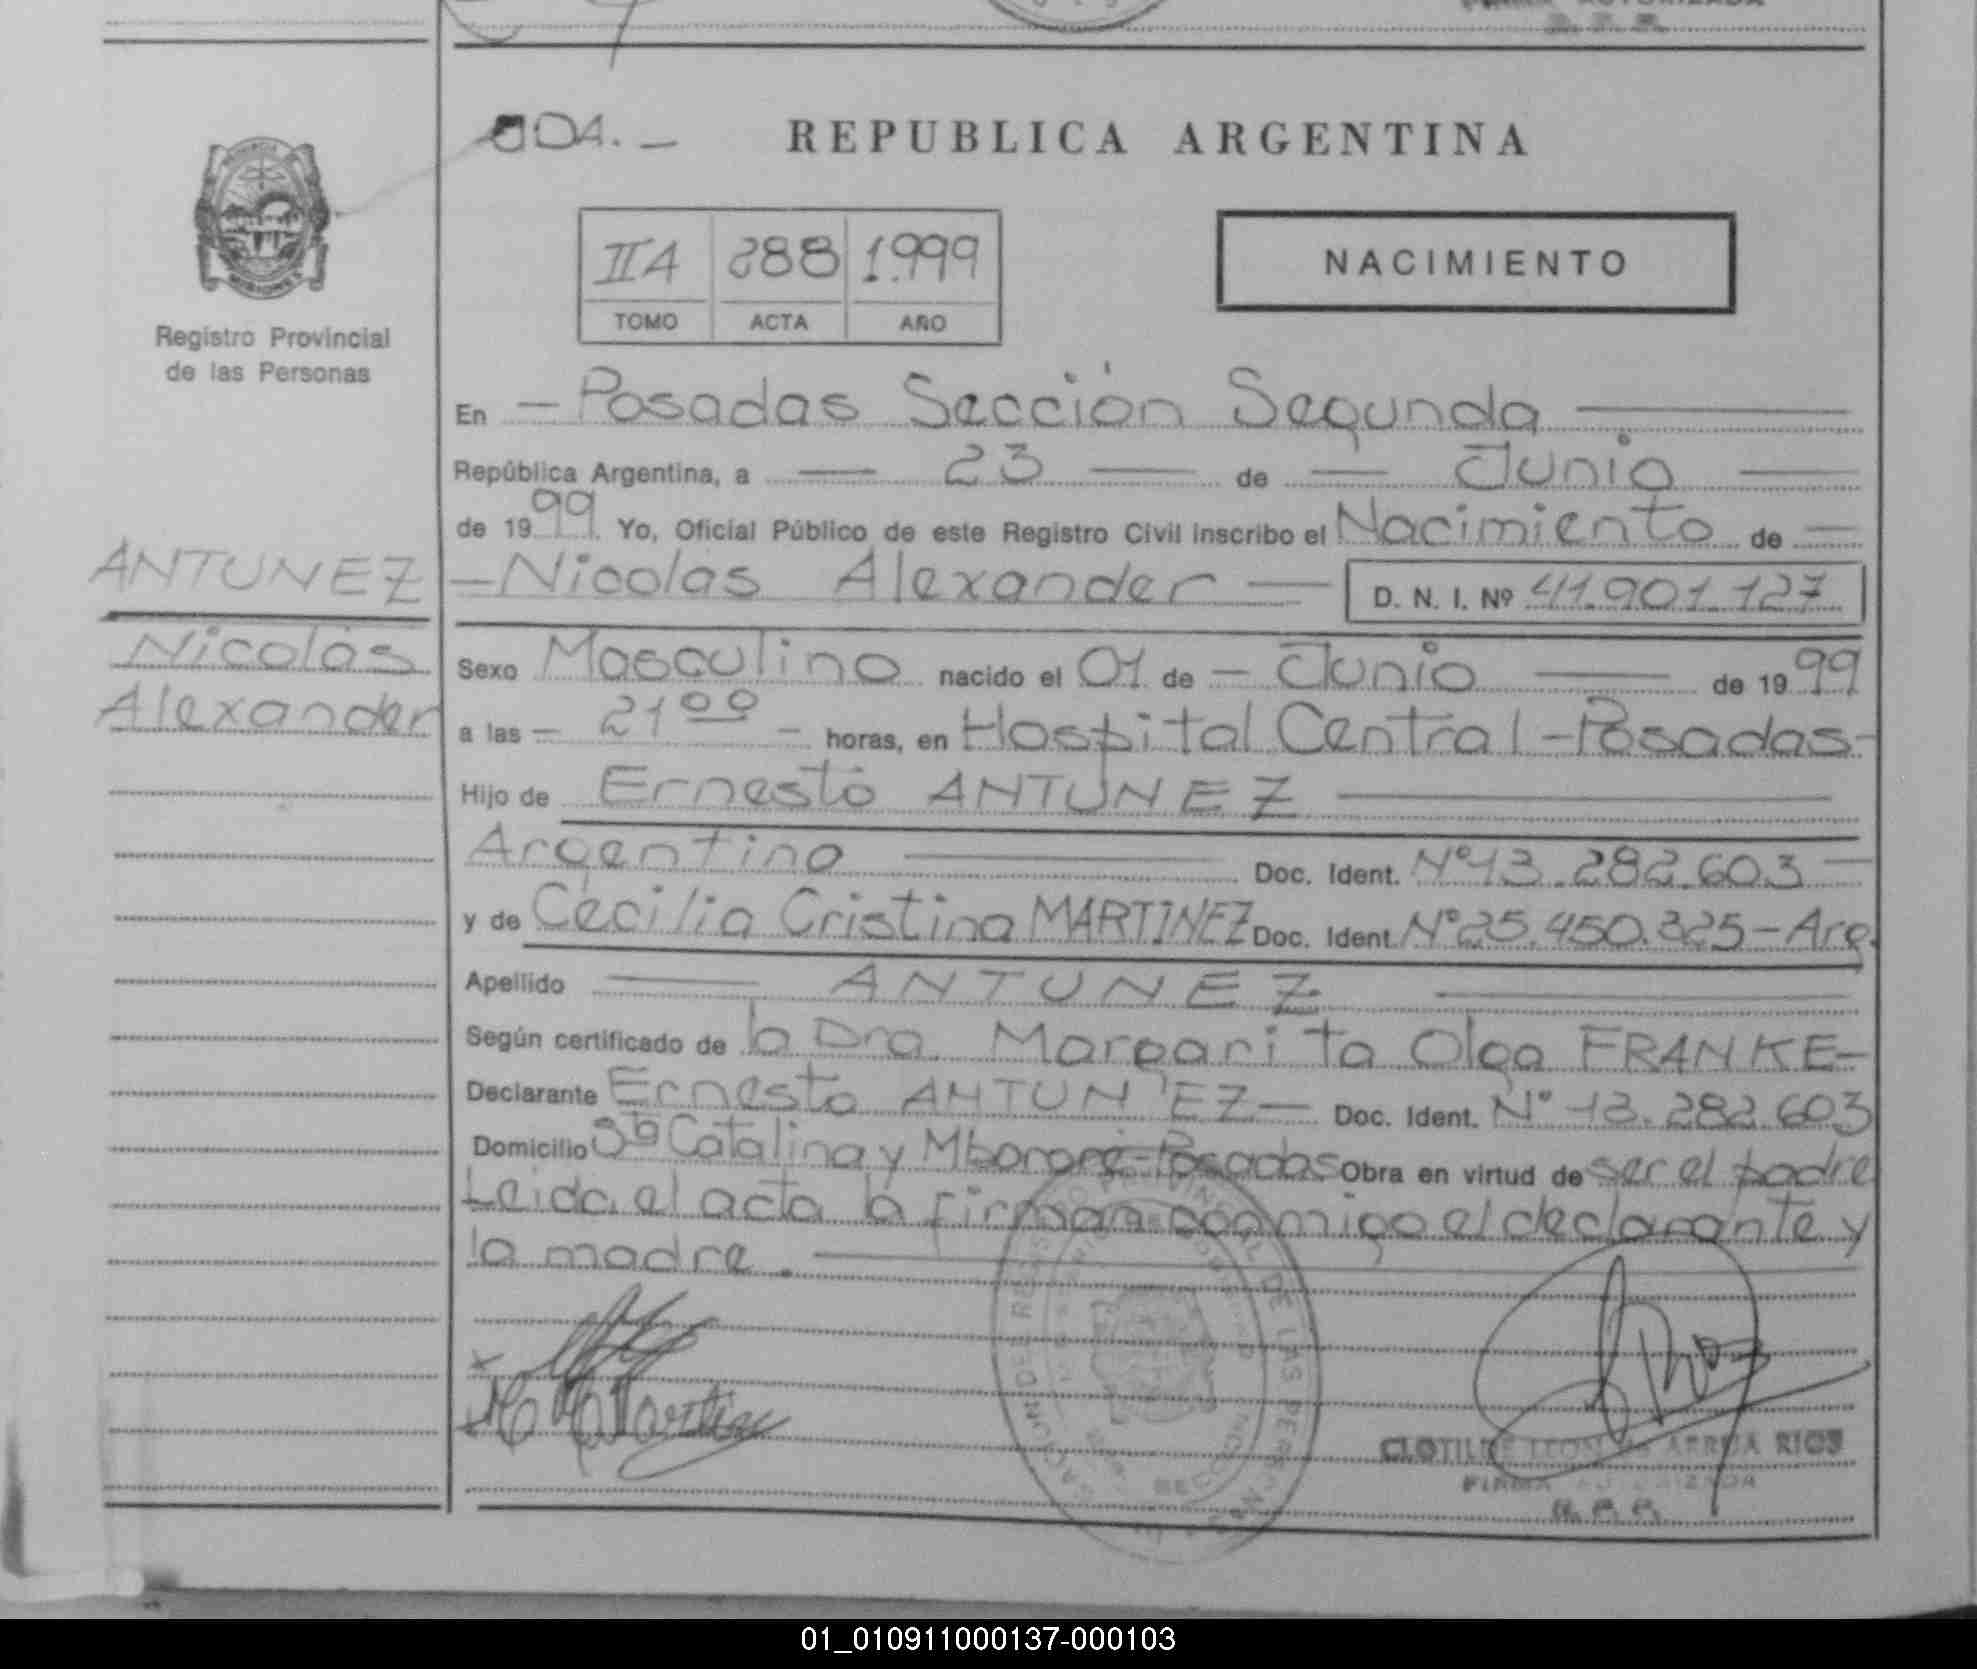 FIRMA AUTORIZADA
ODA.-
REPUBLICA ARGENTINA
IIA 288 1.999
TOMO ACTA AÑO
NACIMIENTO
Registro Provincial
de las Personas
En - Posadas Sección Segunda
República Argentina, a - 23 - de - Junio -
de 1999. Yo, Oficial Público de este Registro Civil inscribo el Nacimiento de -
ANTUNEZ
Nicolás
Alexander
- Nicolas Alexander - D. N. I. Nº 41.901.127
Sexo Masculino nacido el 01 de - Junio - de 1999
a las - 21 00 - horas, en Hospital Central - Posadas-
Hijo de Ernesto ANTUNEZ
Argentino Doc. Ident. Nº 13.282.603 -
y de Cecilia Cristina MARTINEZ Doc. Ident. Nº 25.450.325-Arg.
Apellido - ANTUNEZ -
Según certificado de la Dra. Margarita Olga FRANKE-
Declarante Ernesto ANTUNEZ - Doc. Ident. Nº 13.282.603
Domicilio Sta Catalina y Mbororé-Posadas Obra en virtud de ser el padre
Leida el acta la firman conmigo el declarante y
la madre.
REGISTRO PROVINCIAL DE LAS PERSONAS
CLOTILDE LEON ARRUA RIOS
FIRMA AUTORIZADA
R. P. P.
01_010911000137-000103